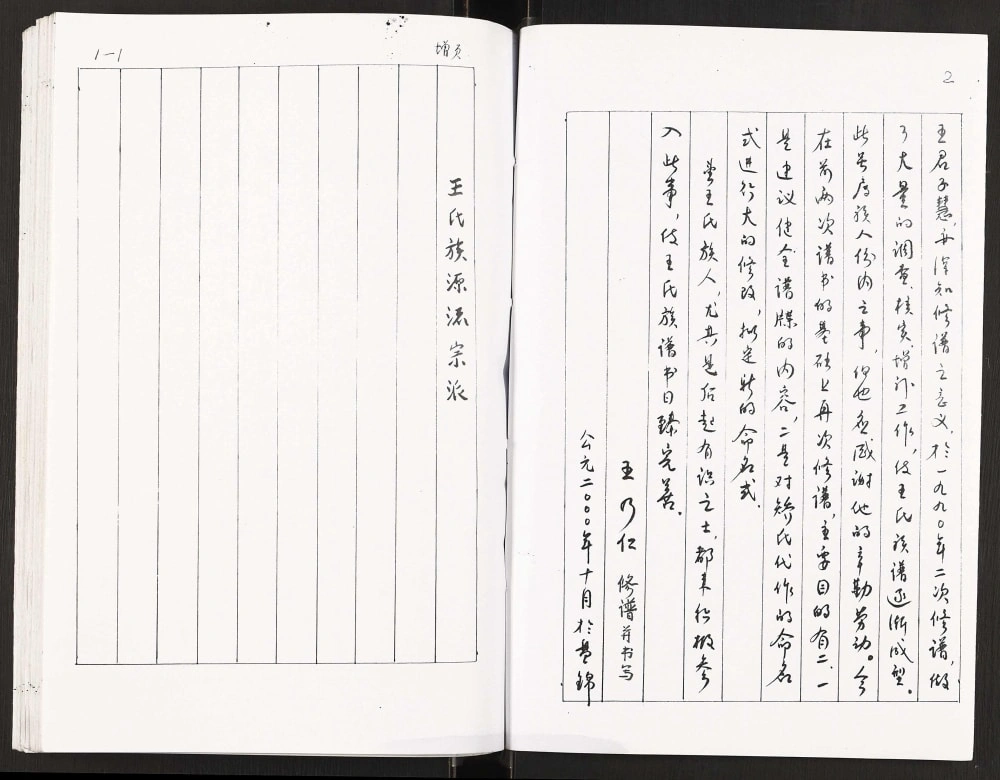 2
王君子慧，再深知修谱之意义，於一九九〇年二次修谱，做
了大量的调查、核实、增补工作，使王氏族谱逐渐成型。
此等应族人份内之事，但也应感谢他的辛勤劳动。今
在前两次谱书的基础上再次修谱，主要目的有二，一
是建议健全谱牒的内容，二是对矫氏代作的命名
式进行大的修改，拟定新的命名式.
望王氏族人，尤其是后起有识之士，都来积极参
入此事，使王氏族谱书日臻完善.
王乃仁 修谱并书写
公元二〇〇〇年十月於盘锦
增页
1-1
王氏族源流宗派